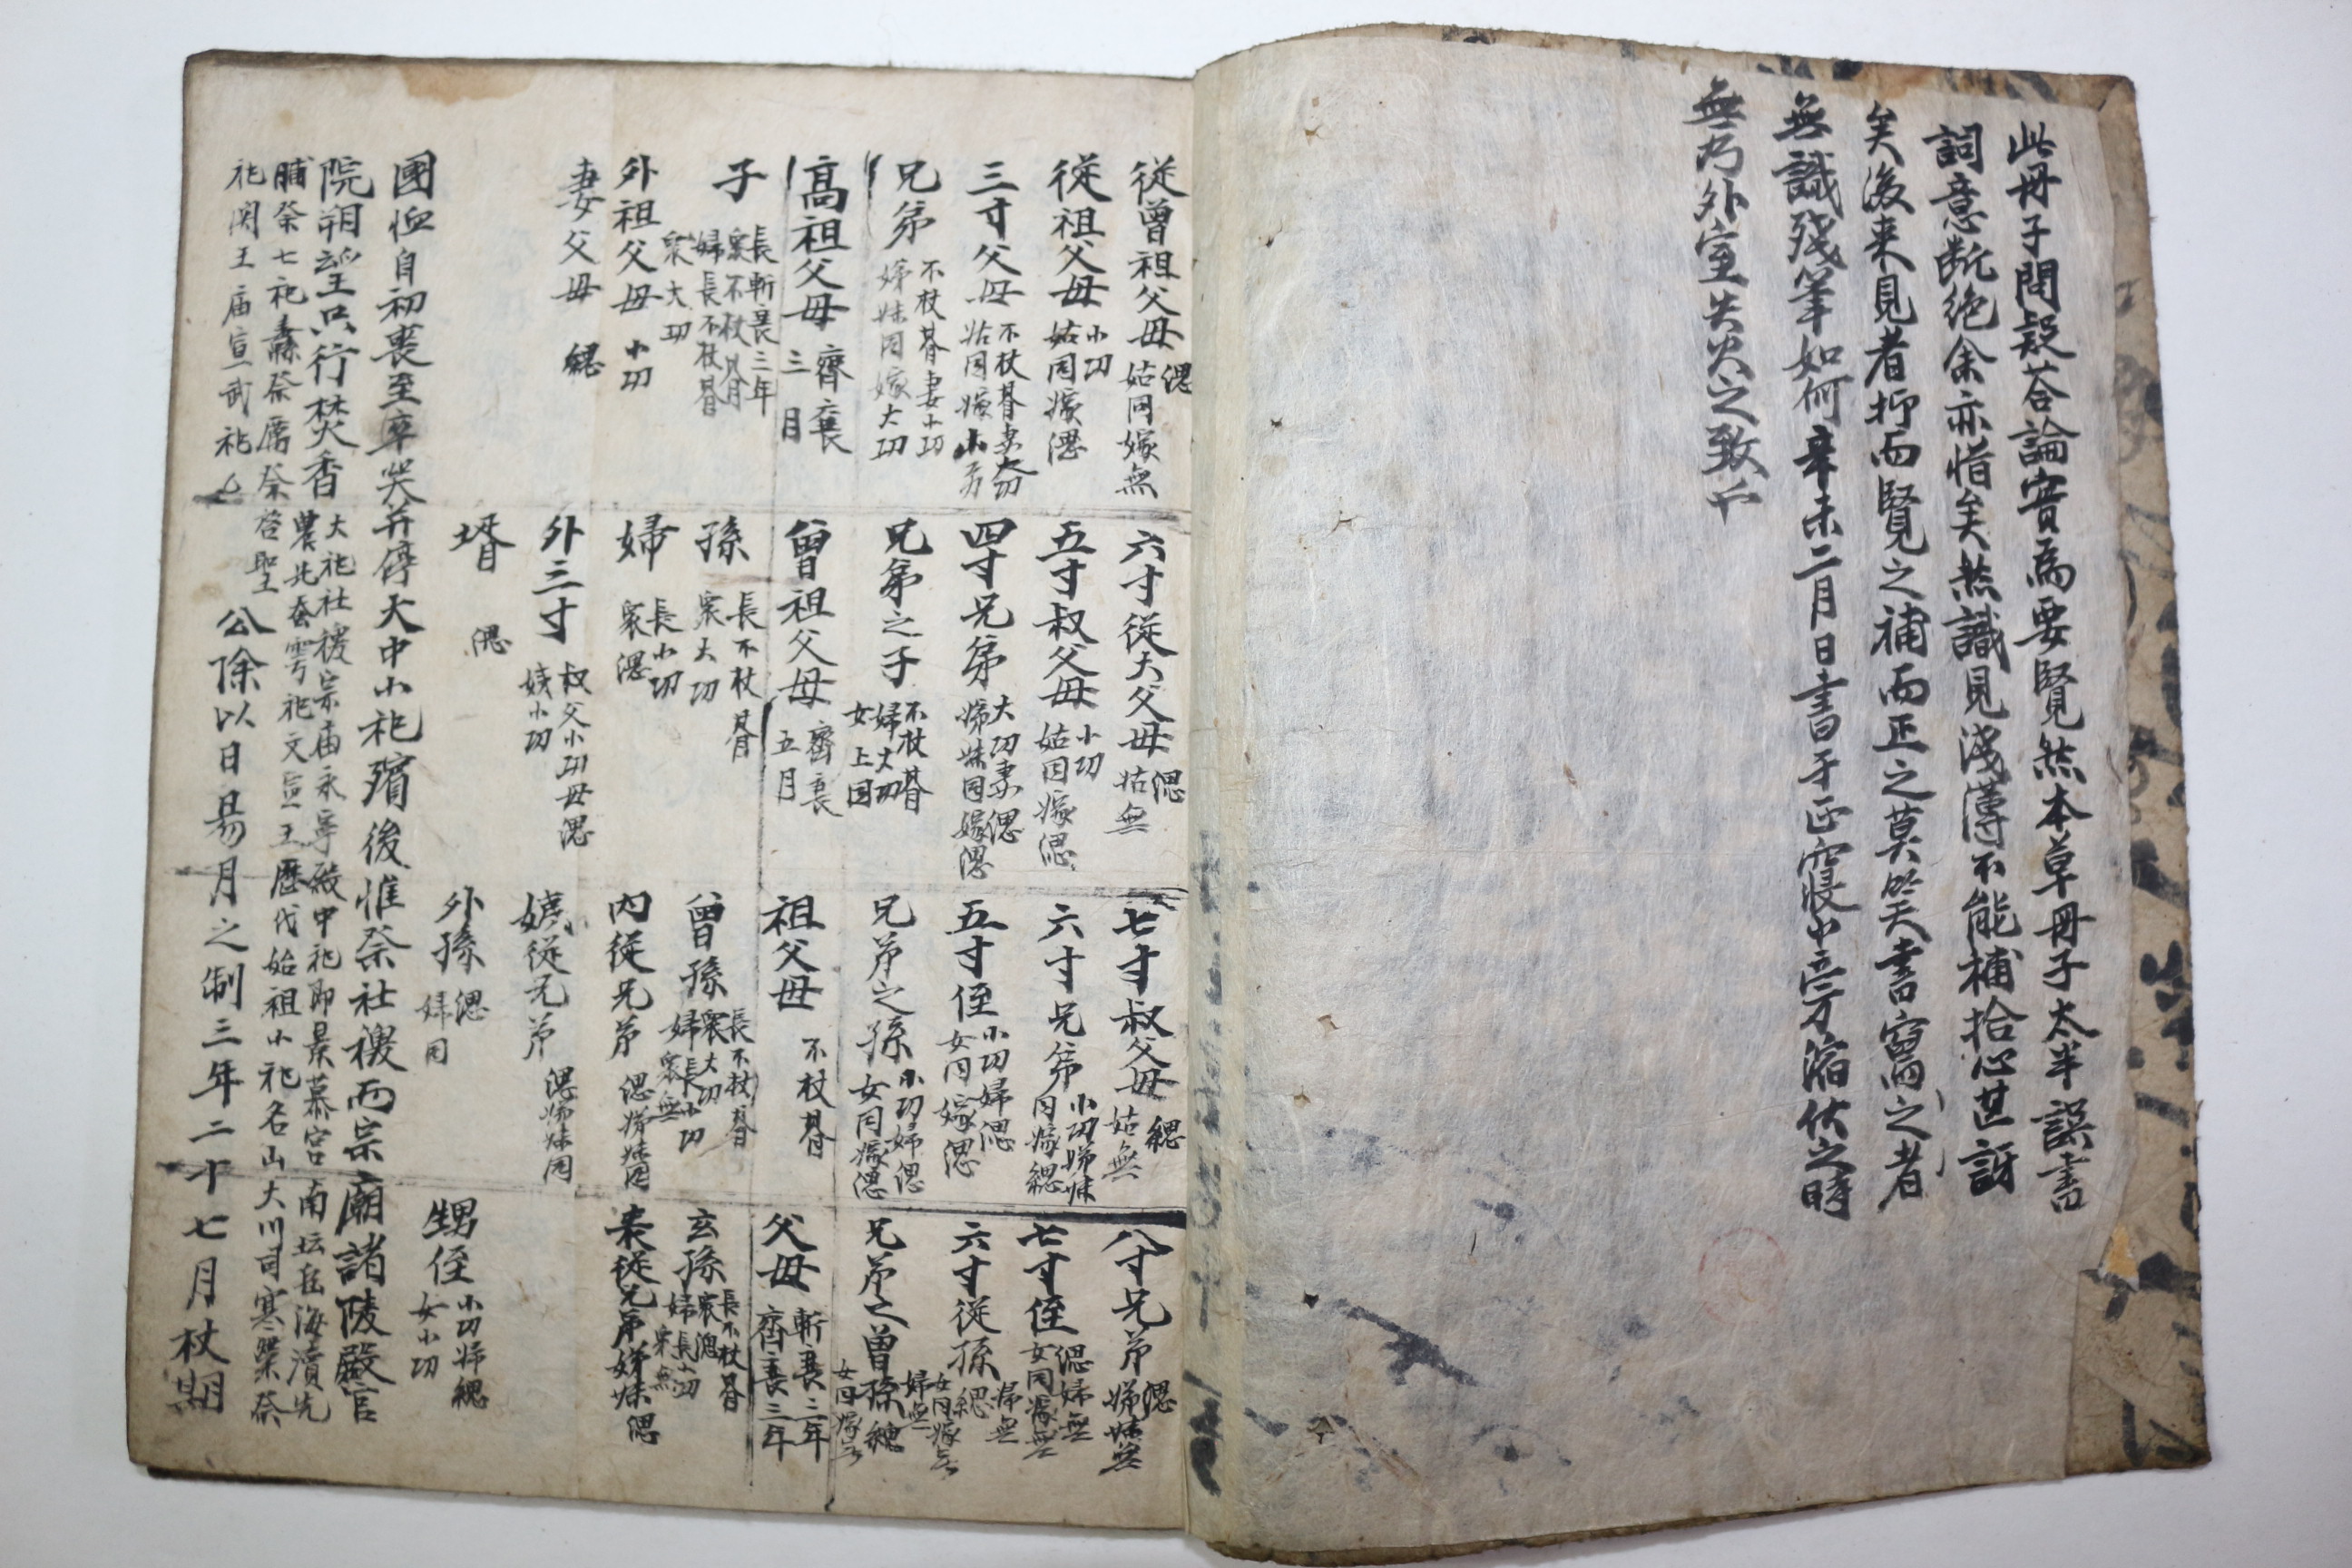 此毋子問疑荅論實爲要覽然本草毋子太半誤書
詞意斷絶余亦惜矣然識見淺薄不能補拾心甚訝
矣後来見者抑而覽之補而正之莫笑書寫之者
無識殘筆如何辛未二月日書于正寢小旁滔伏之時
無乃外室失火之致乎
從曾祖父母 緦 姑同嫁無
六寸從大父母 緦 姑無
七寸叔父母 緦 姑無
八寸兄弟 緦 姊妹無
從祖父母 小功 姑同嫁緦
五寸叔父母 小功 姑同嫁緦
六寸兄弟 小功姊妹 同嫁緦
七寸侄 緦婦無 女同嫁無
三寸父母 不杖朞妻大功 姑同嫁小功
四寸兄弟 大功妻緦 姊妹同嫁緦
五寸侄 小功婦緦 女同嫁緦
六寸從孫 緦 婦無 女同嫁无
兄弟 不杖朞妻小功 姊妹同嫁大功
兄弟之子 不杖朞 婦大功 女上同
兄弟之孫 小功婦緦 女同嫁緦
兄弟之曾孫 緦 婦無 女同嫁无
高祖父母 齊衰 三月
曾祖父母 齊衰 五月
祖父母 不杖朞
父母 斬衰三年 齊衰三年
子 長斬衰三年 衆不杖朞 婦長不杖朞 衆大功
孫 長不杖朞 衆大功
曾孫 長不杖朞 衆大功 婦長小功 衆無
玄孫 長不杖朞 衆緦 婦長小功 衆無
外祖父母 小功
婦 長小功 衆緦
內從兄弟 緦姊妹同
表從兄弟姊妹緦
妻父母 緦
外三寸 叔父小功母緦 姨小功
姨從兄弟 緦姊妹同
壻 緦
外孫 緦 婦同
甥侄 小功婦緦 女小功
國恤自初喪至卒哭并停大中小祀殯後惟祭社稷而宗廟諸陵殿官
院朔望只行焚香 大祀社稷宗庙永寧殿中祀即景慕宮南坛岳海瀆先
農先蚕雩祀文宣王歷代始祖小祀名山大川司寒禜祭
酺祭七祀纛祭厲祭啓聖
祀関王庙宣武祀么
公除以日易月之制三年二十七月杖期